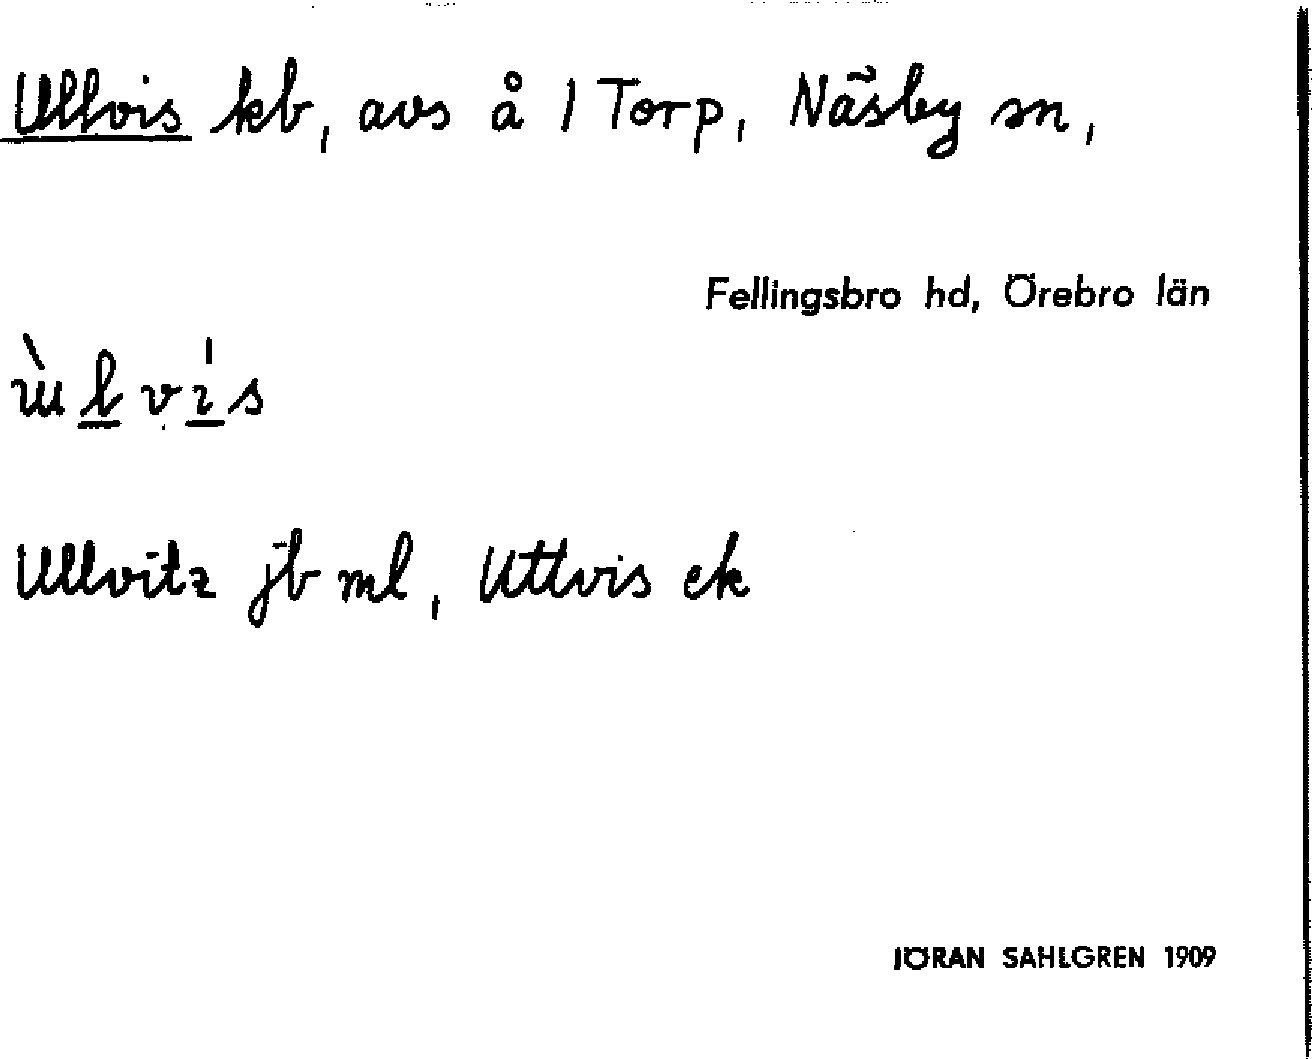 Ullvis kb, avs å 1 Torp, Näsby sn,
Fellingsbro hd, Örebro län
ùlvis
Ullvitz jb ml, Uttvis ek
JÖRAN SAHLGREN 1909